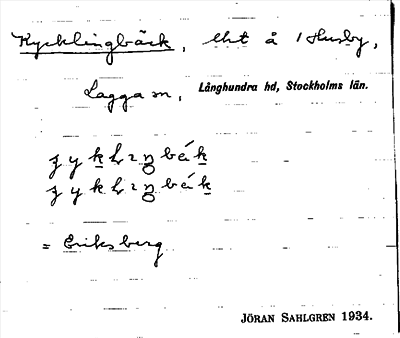 Kycklingbäck, lht å 1 Husby,
Lagga sn, Långhundra hd, Stockholms län.
= Eriksberg
JÖRAN SAHLGREN 1934.